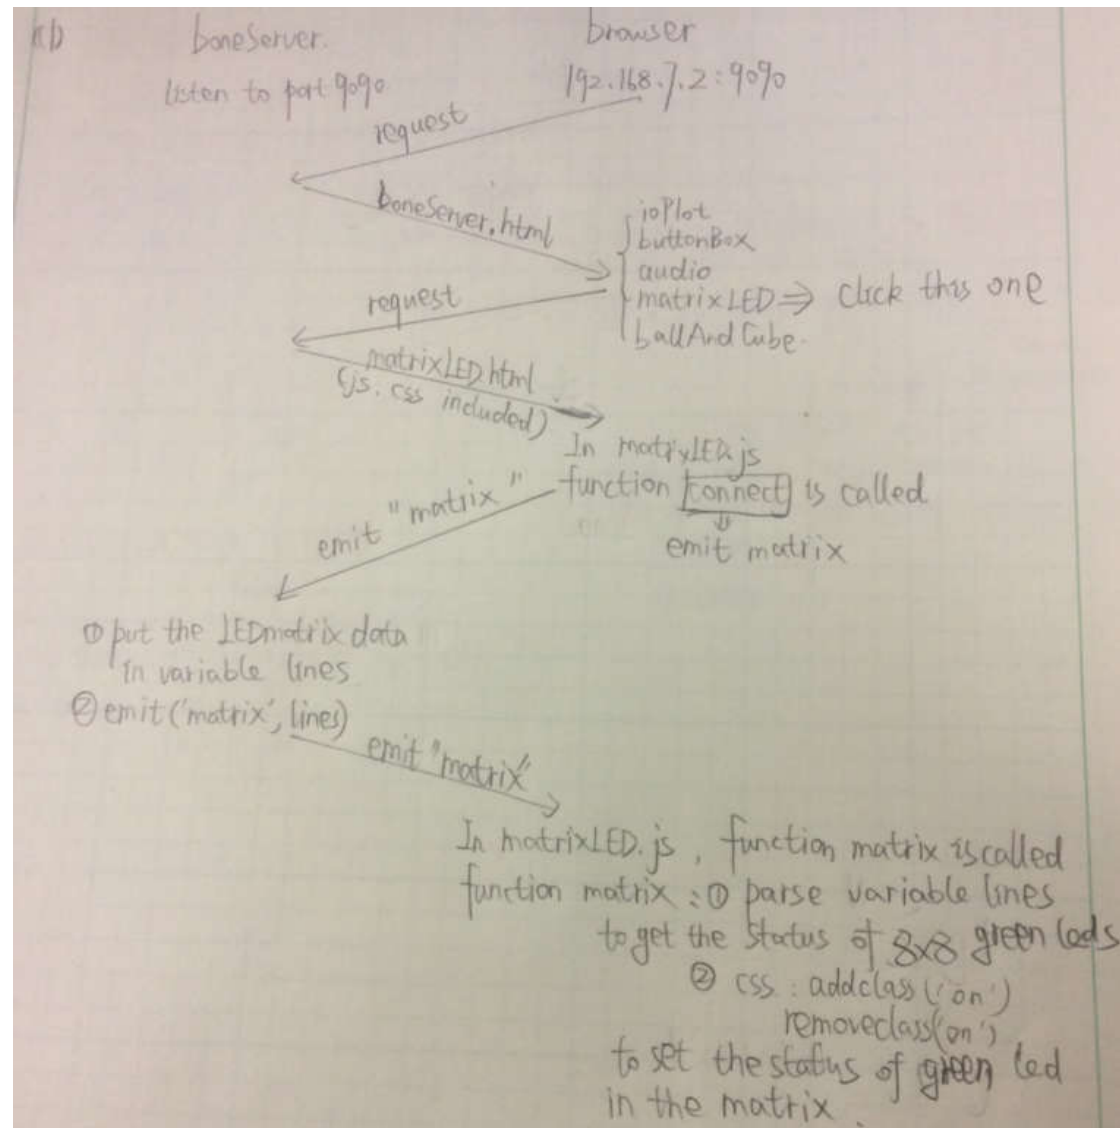 (1)
boneServer.
browser
listen to port 9090
192.168.7.2:9090
request
boneServer.html
ioPlot
buttonBox
audio
matrixLED ⇒ click this one
ballAndCube.
request
matrixLED.html
(js. css included)
In matrixLED.js
function connect is called
⇓
emit matrix
emit "matrix"
① put the LEDmatrix data
in variable lines
② emit('matrix', lines)
emit "matrix"
In matrixLED.js, function matrix is called
function matrix : ① parse variable lines
to get the status of 8x8 green leds
② css : addclass('on')
removeclass('on')
to set the status of green led
in the matrix.